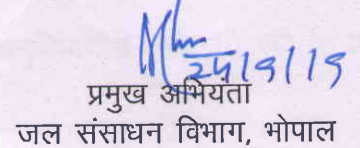 25/9/19
प्रमुख अभियंता
जल संसाधन विभाग, भोपाल